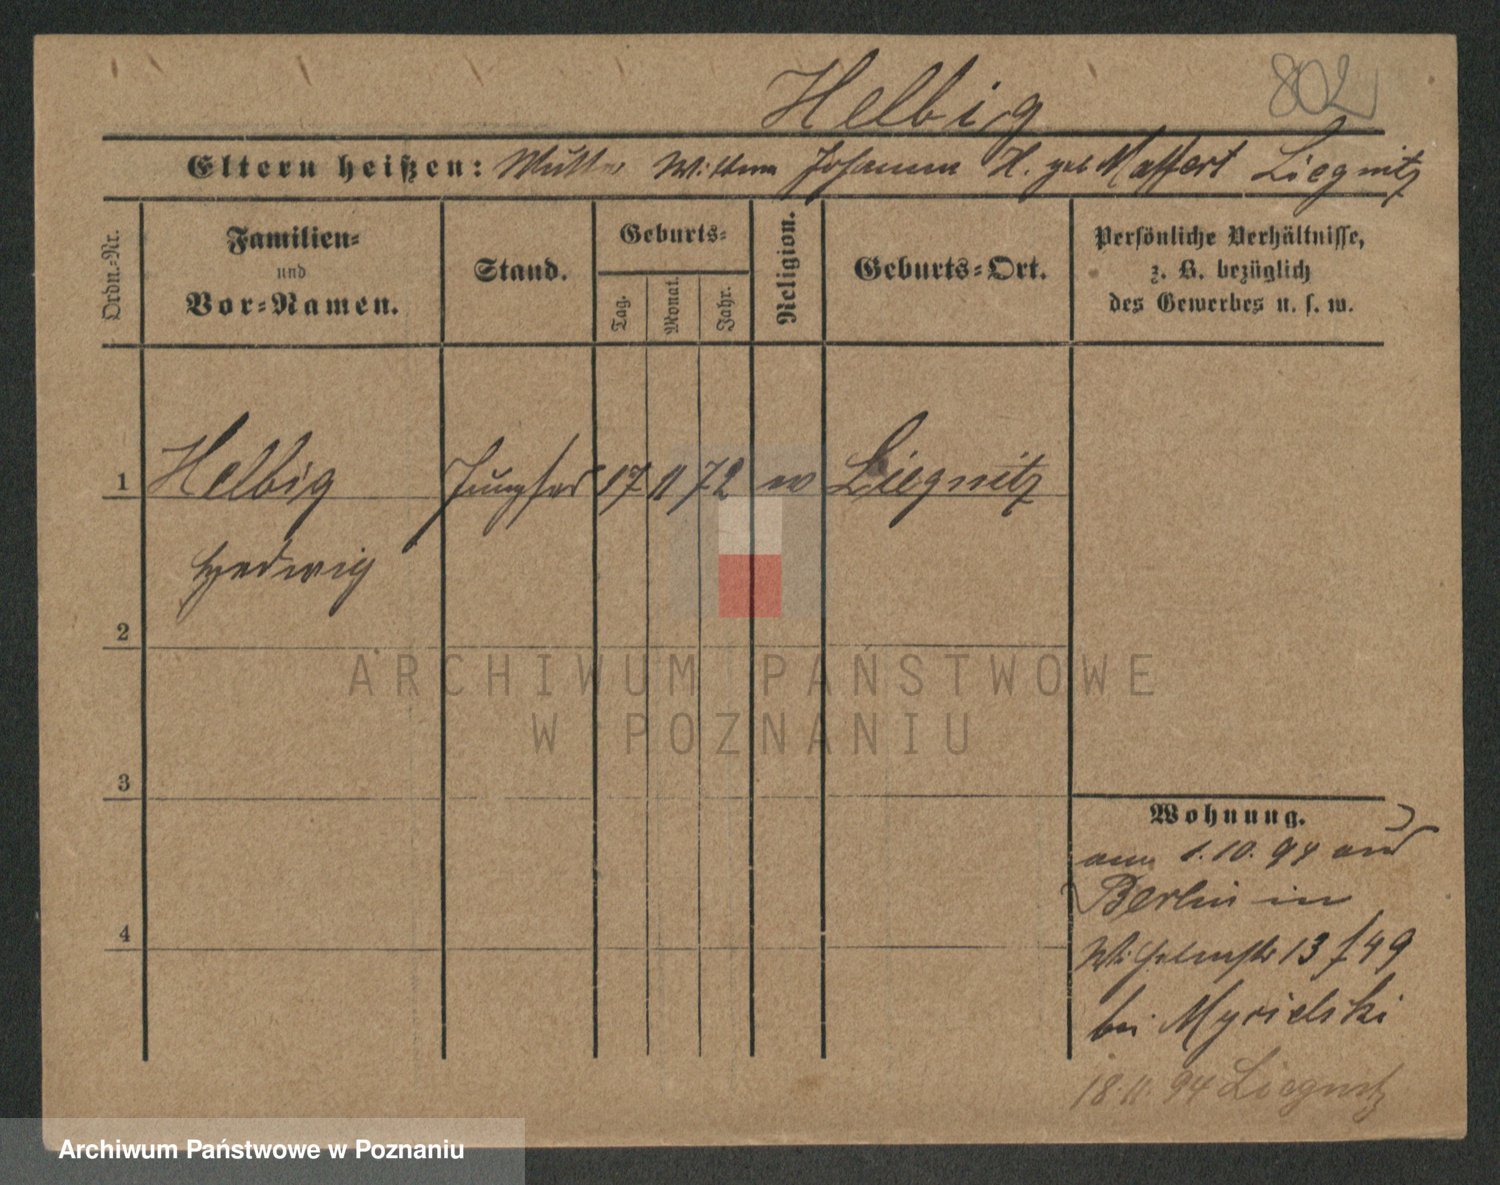 Helbig
802
Eltern heißen: Mutter Wittwe Johanna H. geb Maffert Liegnitz
Ordn.-Nr.
Familien-
und
Vor-Namen.
Stand.
Geburts-
Tag.
Monat.
Jahr.
Religion.
Geburts-Ort.
Persönliche Verhältnisse,
z. B. bezüglich
des Gewerbes u. s. w.
1 Helbig 17 11 72 ev Liegnitz
Hedwig
2
ARCHIWUM PAŃSTWOWE
W POZNANIU
3
Wohnung.
am 1.10.94 aus
Berlin in
Wilhelmstr 13/49
4
bei
18.11.94 Liegnitz
Archiwum Państwowe w Poznaniu